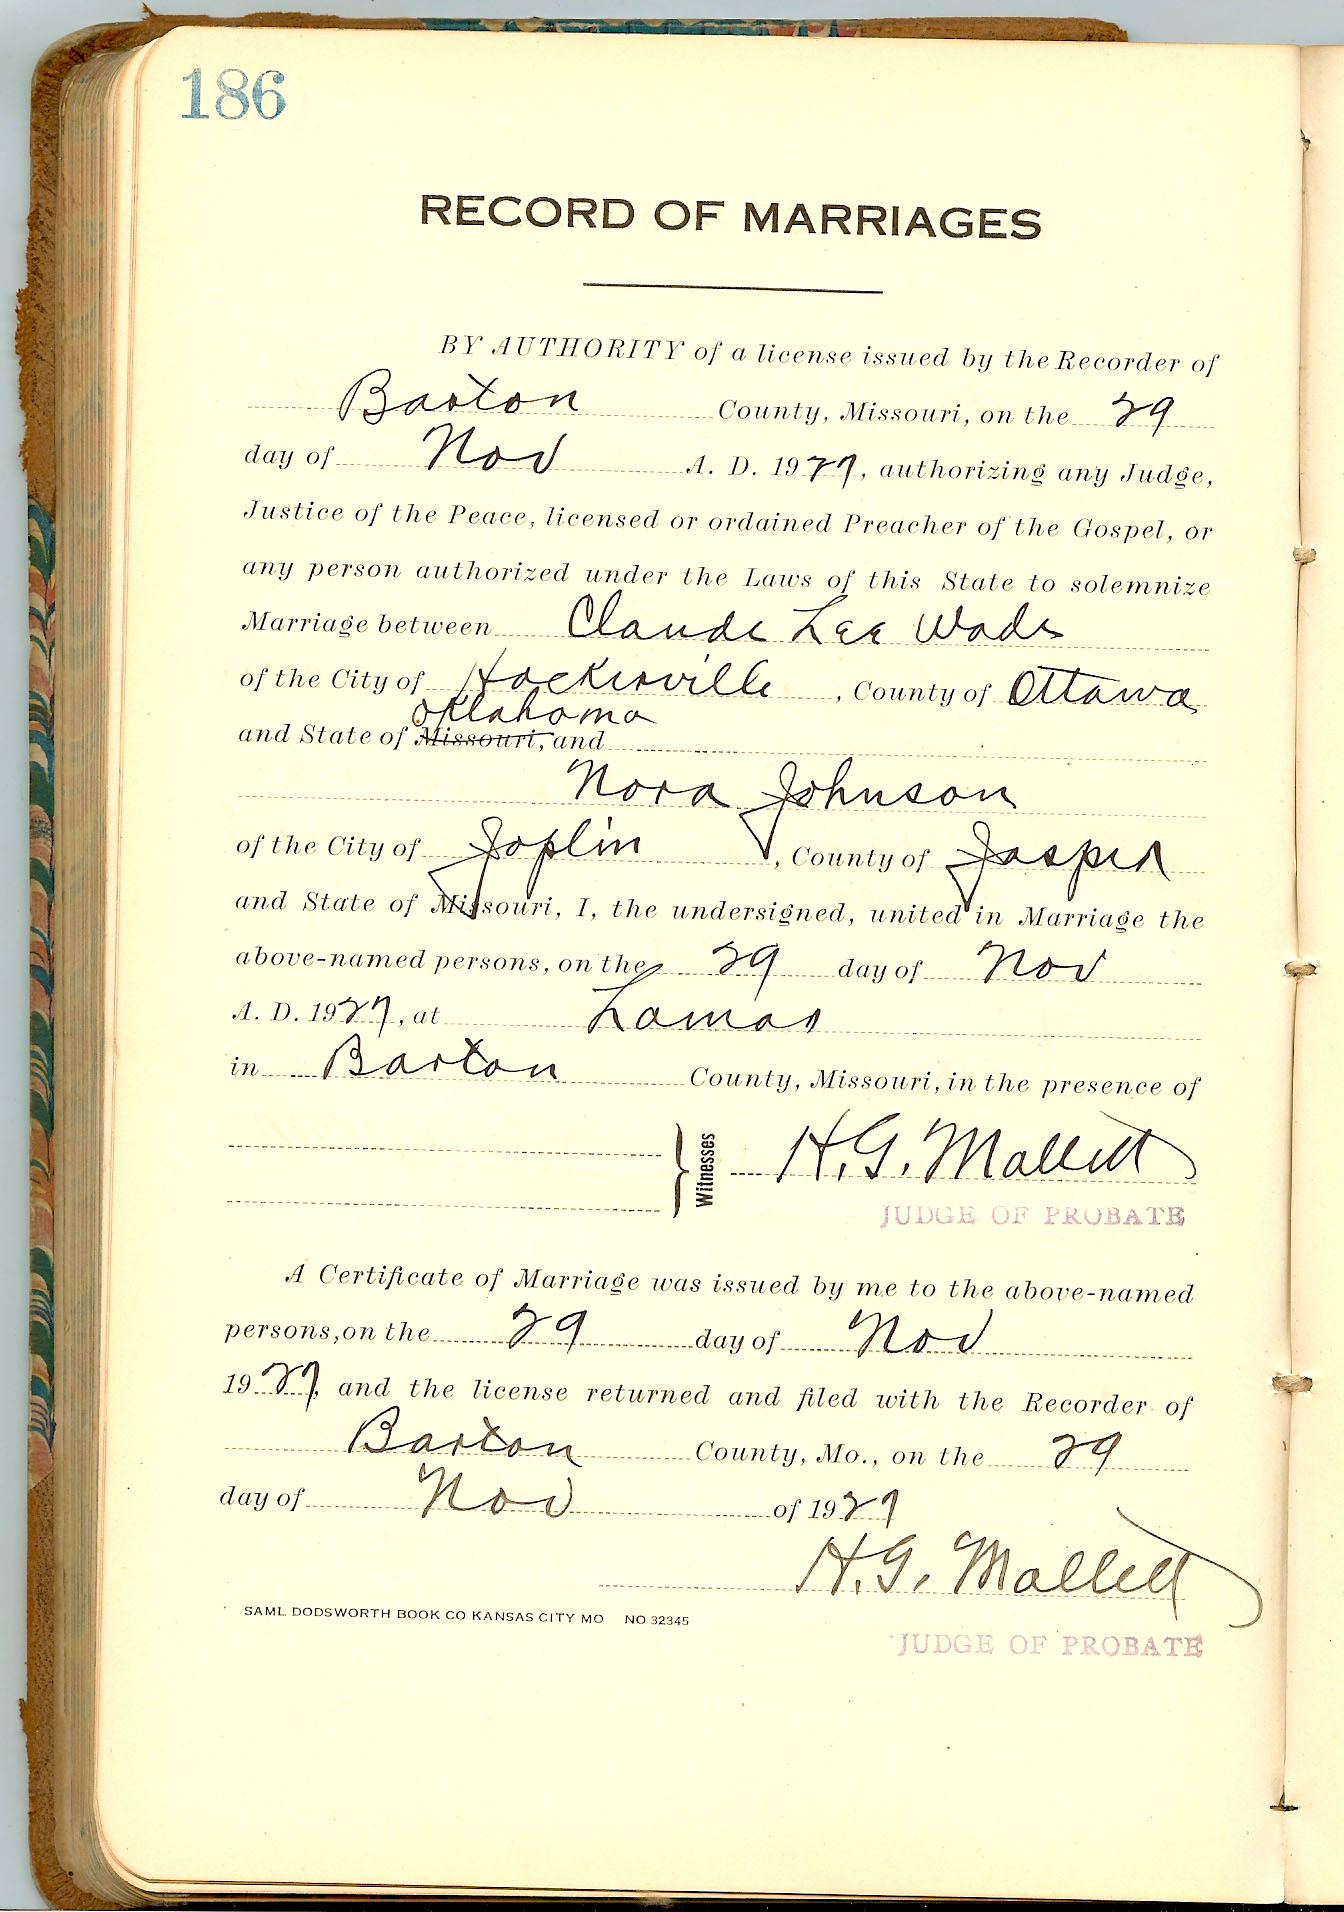 186
RECORD OF MARRIAGES
BY AUTHORITY of a license issued by the Recorder of
Barton County, Missouri, on the 29
day of Nov A. D. 1927, authorizing any Judge,
Justice of the Peace, licensed or ordained Preacher of the Gospel, or
any person authorized under the Laws of this State to solemnize
Marriage between Claude Lee Wade
of the City of Hockerville, County of Ottawa
Oklahoma
and State of Missouri, and
Nora Johnson
of the City of Joplin, County of Jasper
and State of Missouri, I, the undersigned, united in Marriage the
above-named persons, on the 29 day of Nov
A. D. 1927, at Lamar
in Barton County, Missouri, in the presence of
Witnesses H. G. Mallett
JUDGE OF PROBATE
A Certificate of Marriage was issued by me to the above-named
persons, on the 29 day of Nov
1927, and the license returned and filed with the Recorder of
Barton County, Mo., on the 29
day of Nov of 1927
H. G. Mallett
SAML DODSWORTH BOOK CO KANSAS CITY MO NO 32345
JUDGE OF PROBATE